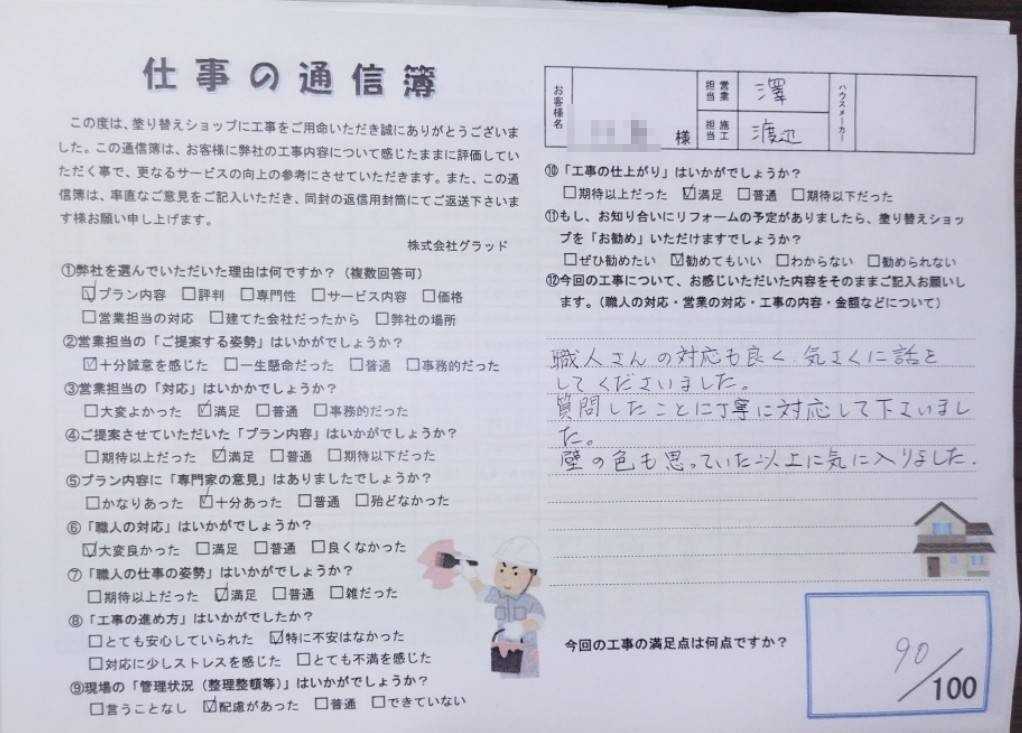 仕事の通信簿
この度は、塗り替えショップに工事をご用命いただき誠にありがとうございま
した。この通信簿は、お客様に弊社の工事内容について感じたままに評価してい
ただく事で、更なるサービスの向上の参考にさせていただきます。また、この通
信簿は、率直なご意見をご記入いただき、同封の返信用封筒にてご返送下さいま
す様お願い申し上げます。
株式会社グラッド
①弊社を選んでいただいた理由は何ですか?(複数回答可)
☑プラン内容 □評判 □専門性 □サービス内容 □価格
□営業担当の対応 □建てた会社だったから □弊社の場所
②営業担当の「ご提案する姿勢」はいかがでしょうか?
☑十分誠意を感じた □一生懸命だった □普通 □事務的だった
③営業担当の「対応」はいかがでしょうか?
□大変よかった ☑満足 □普通 □事務的だった
④ご提案させていただいた「プラン内容」はいかがでしょうか?
□期待以上だった ☑満足 □普通 □期待以下だった
⑤プラン内容に「専門家の意見」はありましたでしょうか?
□かなりあった ☑十分あった □普通 □殆どなかった
⑥「職人の対応」はいかがでしょうか?
☑大変良かった □満足 □普通 □良くなかった
⑦「職人の仕事の姿勢」はいかがでしょうか?
□期待以上だった ☑満足 □普通 □雑だった
⑧「工事の進め方」はいかがでしたか?
□とても安心していられた ☑特に不安はなかった
□対応に少しストレスを感じた □とても不満を感じた
⑨現場の「管理状況(整理整頓等)」はいかがでしょうか?
□言うことなし ☑配慮があった □普通 □できていない
お客様名 様
営業担当 澤
施工担当 渡辺
ハウスメーカー
⑩「工事の仕上がり」はいかがでしょうか?
□期待以上だった ☑満足 □普通 □期待以下だった
⑪もし、お知り合いにリフォームの予定がありましたら、塗り替えショッ
プを「お勧め」いただけますでしょうか?
□ぜひ勧めたい ☑勧めてもいい □わからない □勧められない
⑫今回の工事について、お感じいただいた内容をそのままご記入お願いし
ます。(職人の対応・営業の対応・工事の内容・金額などについて)
職人さんの対応も良く、気さくに話を
してくださいました。
質問したことに丁寧に対応して下さいまし
た。
壁の色も思っていた以上に気に入りました.
今回の工事の満足点は何点ですか?
90/100